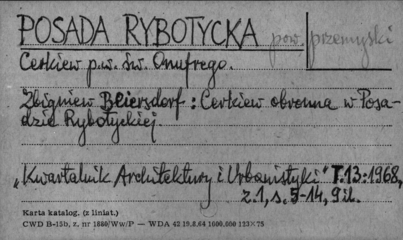 POSADA RYBOTYCKA pow. przemyski
Cerkiew p.w. Św. Onufrego.
Zbigniew Beiersdorf: Cerkiew obronna w Posa-
dzie Rybotyckiej.
„Kwartalnik Architektury i Urbanistyki" T.13:1968,
z.1, s.3-14, 9 il.
Karta katalog. (z liniat.)
CWD B-15b, z. nr 1880/Ww/P — WDA 42 19.8.64 1000.000 123×75